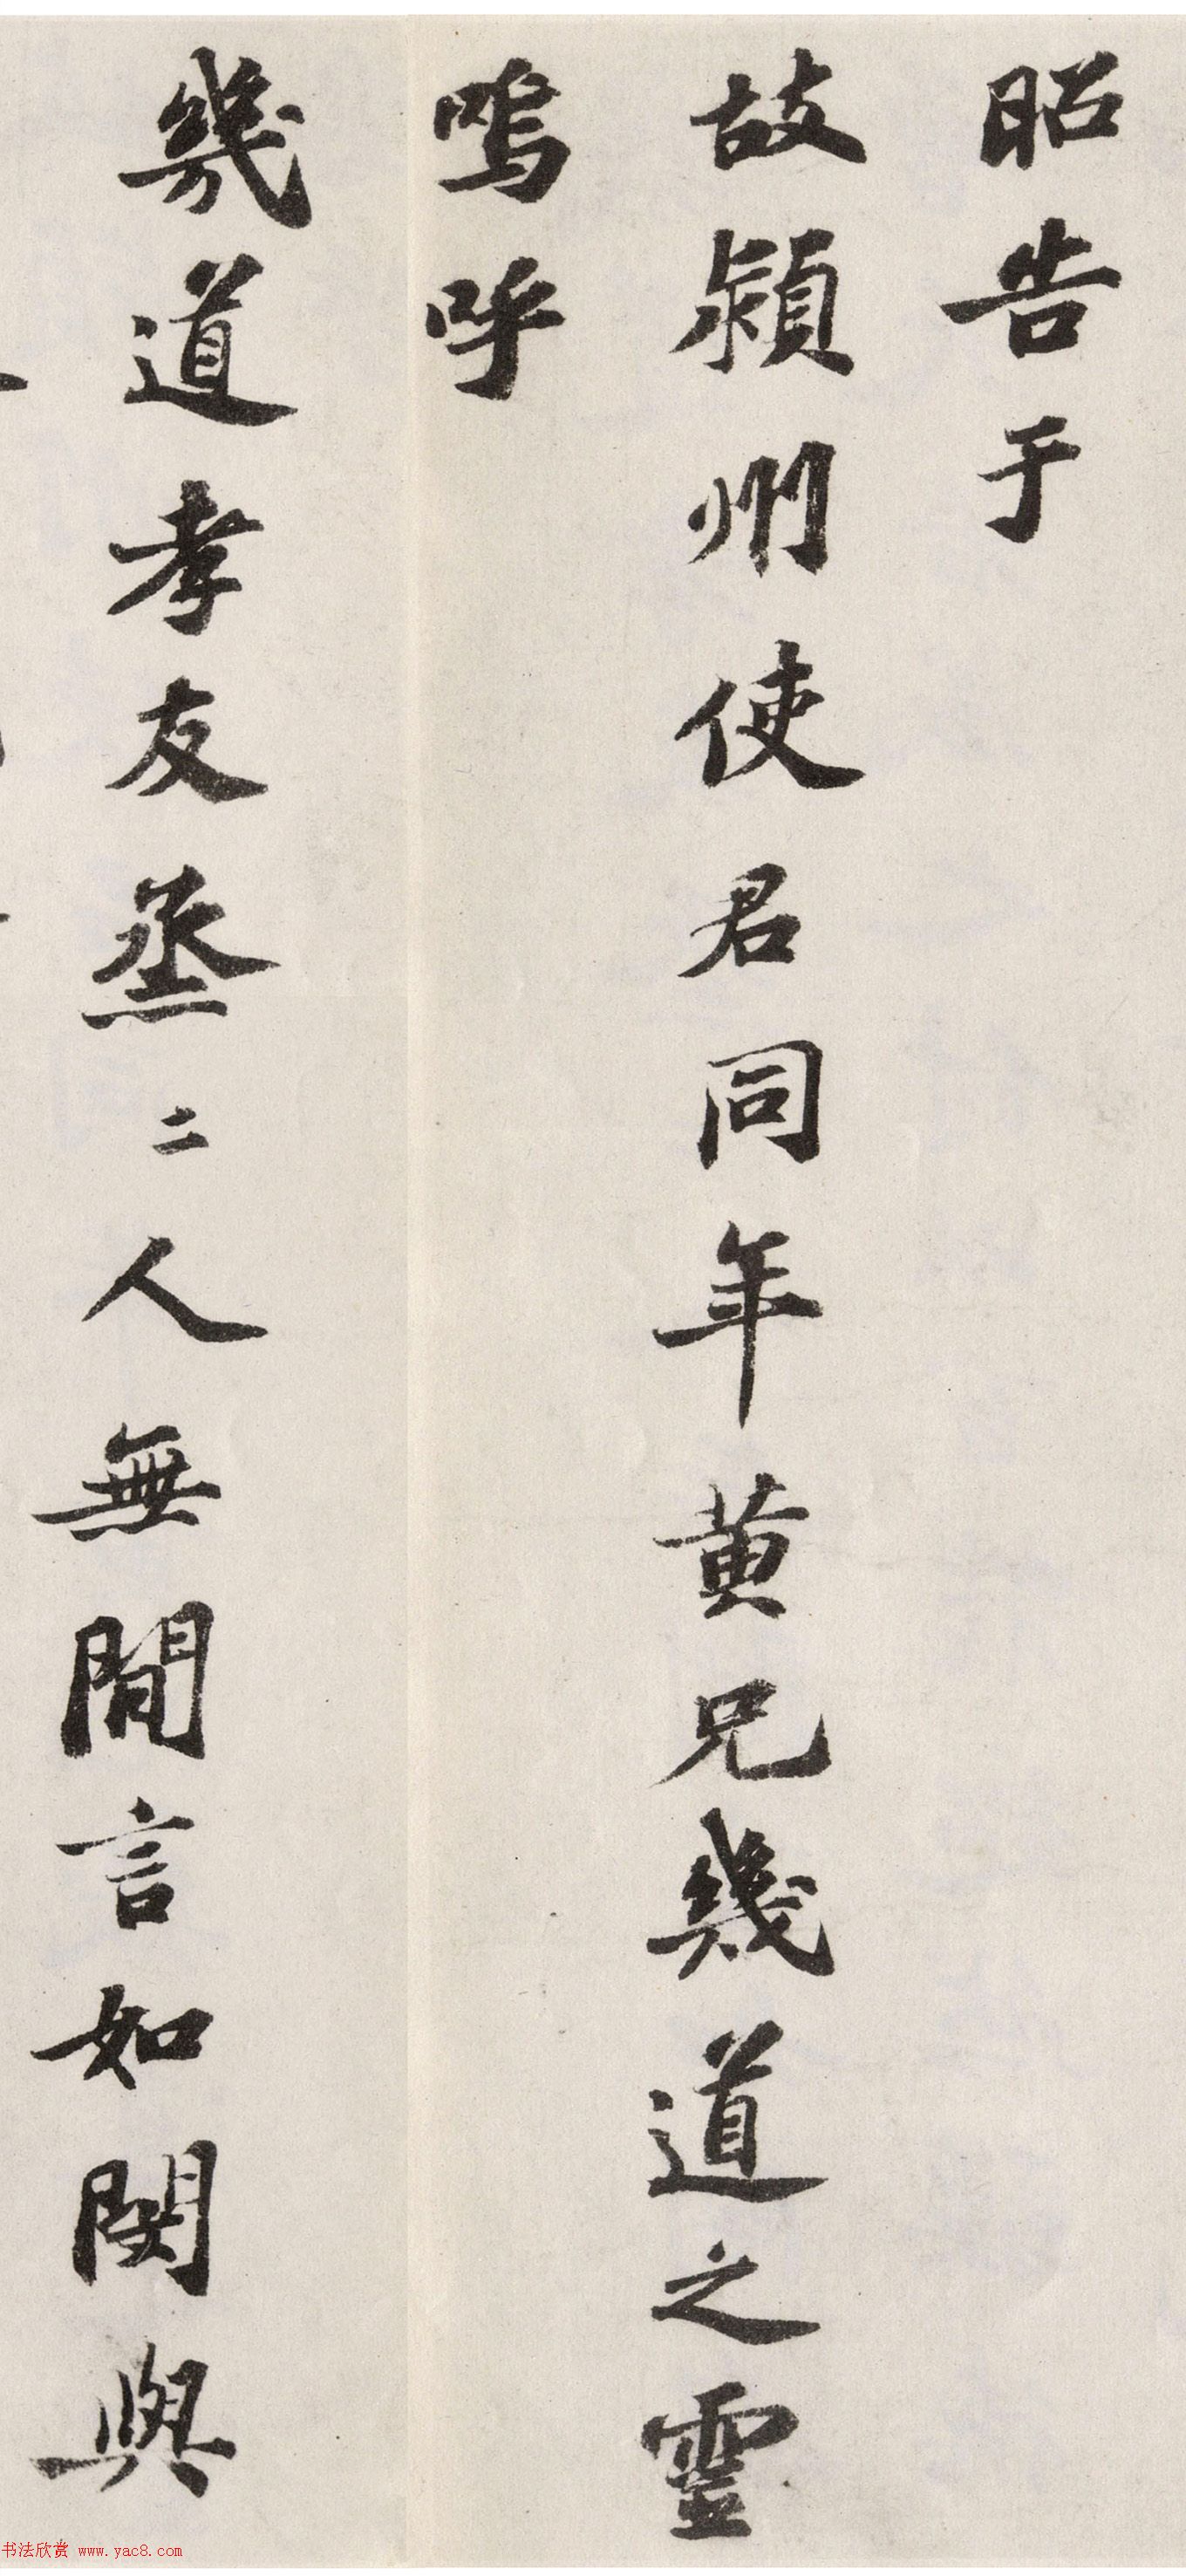 昭告于
故潁州使君同年黄兄幾道之靈
嗚呼
幾道孝友烝二人無間言如閔與
书法欣赏 www.yac8.com